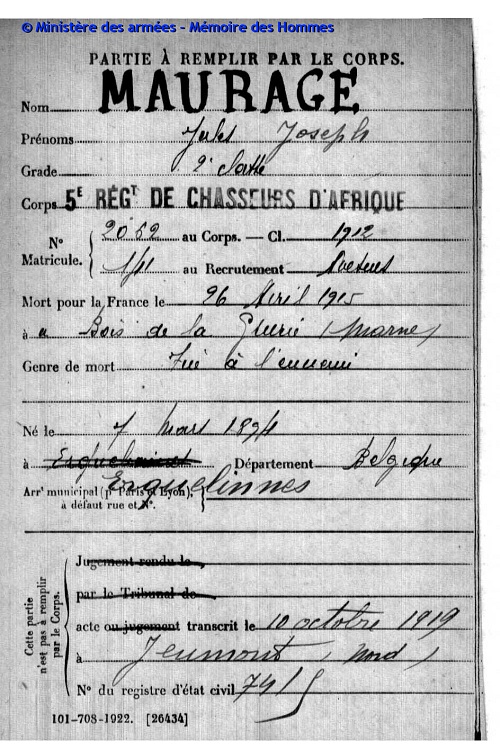 © Ministère des armées - Mémoire des Hommes
PARTIE À REMPLIR PAR LE CORPS.
Nom MAURAGE
Prénoms Jules Joseph
Grade 2e classe
Corps 5E RÉGT DE CHASSEURS D'AFRIQUE
N° Matricule. 2052 au Corps. — Cl. 1912
au Recrutement
Mort pour la France le 26 Avril 1915
à Bois de la Grurie (Marne)
Genre de mort Tué à l'ennemi
Né le 7 mars 1894
à Département Belgique
Arrt municipal (pr Paris et Lyon), à défaut rue et N°. Erquelinnes
Cette partie n'est pas à remplir par le Corps.
Jugement rendu le
par le Tribunal de
acte ou jugement transcrit le 10 octobre 1919
à Jeumont (Nord)
N° du registre d'état civil
101-708-1922. [26434]